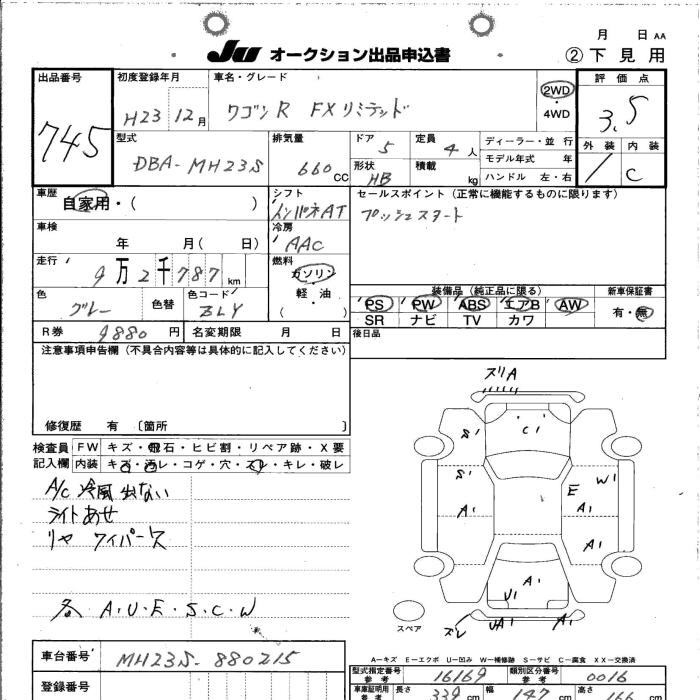 月 日 AA
JU オークション出品申込書 ②下見用
出品番号 初度登録年月 車名・グレード 評価点
745 H23 12月 ワゴンR FXリミテッド 2WD 4WD 3.5
型式 排気量 ドア 定員 ディーラー・並行 外装 内装
DBA-MH23S 660cc 5 4人 モデル年式 年 C
形状 積載 ハンドル 左・右
HB kg
車歴 シフト セールスポイント(正常に機能するものに限ります)
自家用・( ) インパネAT プッシュスタート
車検 冷房
年 月( 日) AAC
走行 燃料
9万2千787km ガソリン
軽・油
( )
色 色替 色コード 装備品(純正品に限る) 新車保証書
グレー ZLY PS PW ABS エアB AW 有・無
SR ナビ TV カワ
R券 9880円 名変期限 月 日 後日品
注意事項申告欄(不具合内容等は具体的に記入してください)
修復歴 有 〔箇所 〕
検査員 FW キズ・飛石・ヒビ割・リペア跡・X要
記入欄 内装 キズ・汚レ・コゲ・穴・スレ・キレ・破レ
A/C 冷風出ない
ライトあせ
リヤ ワイパーX
各 A・U・E・S・C・W
ズリA
S1 C1
S1 E W1
A1 A1
A1
A1
U1
スレ UA1 A1
スペア
A-キズ E-エクボ U-凹み W-補修跡 S-サビ C-腐食 XX-交換済
車台番号 MH23S-880215 型式指定番号 参考 16169 類別区分番号 参考 0016
登録番号 車庫証明用 参考 長さ 339cm 幅 147cm 高さ 166cm